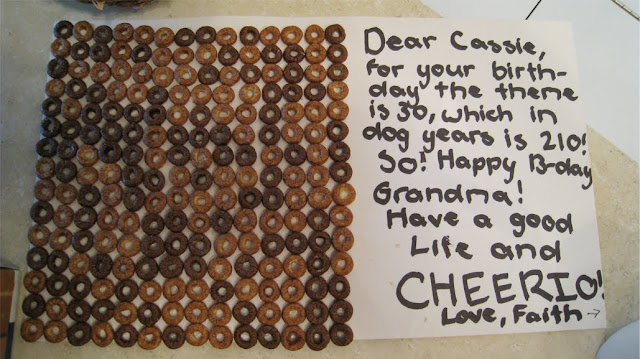 Dear Cassie,
for your birth-
day the theme
is 30, which in
dog years is 210!
So! Happy B-day
Grandma!
Have a good
Life and
CHEERIO!
Love, Faith →